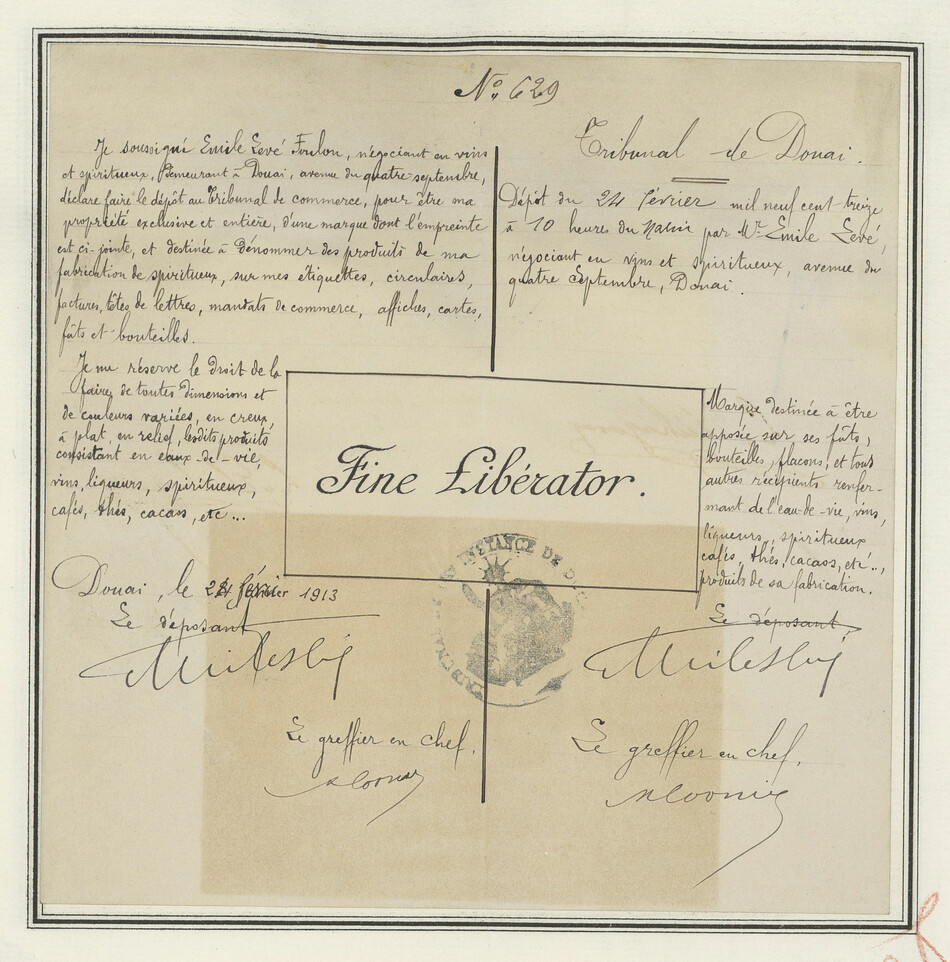 N° 629
Je soussigné Emile Levé Foulon, négociant en vins
et spiritueux, demeurant à Douai, avenue du quatre-septembre,
déclare faire le dépôt au Tribunal de commerce, pour être ma
propriété exclusive et entière, d'une marque dont l'empreinte
est ci-jointe, et destinée à dénommer des produits de ma
fabrication de spiritueux, sur mes étiquettes, circulaires,
factures, têtes de lettres, mandats de commerce, affiches, cartes,
fûts et bouteilles.
Je me réserve le droit de la
faire de toutes dimensions et
de couleurs variées, en creux,
à plat, en relief, lesdits produits
consistant en eaux-de-vie,
vins, liqueurs, spiritueux,
cafés, thés, cacaos, etc...
Douai, le 24 février 1913
Le déposant
Le greffier en chef.
Tribunal de Douai.
Dépôt du 24 février mil neuf cent treize
à 10 heures du matin par Mr Emile Levé,
négociant en vins et spiritueux, avenue du
quatre Septembre, Douai.
Fine Libérator.
Marque destinée à être
apposée sur ses fûts,
bouteilles, flacons, et tous
autres récipients renfer-
mant de l'eau-de-vie, vins,
liqueurs, spiritueux
cafés, thés, cacaos, etc..,
produits de sa fabrication.
Le déposant
Le greffier en chef.
INSTANCE DE